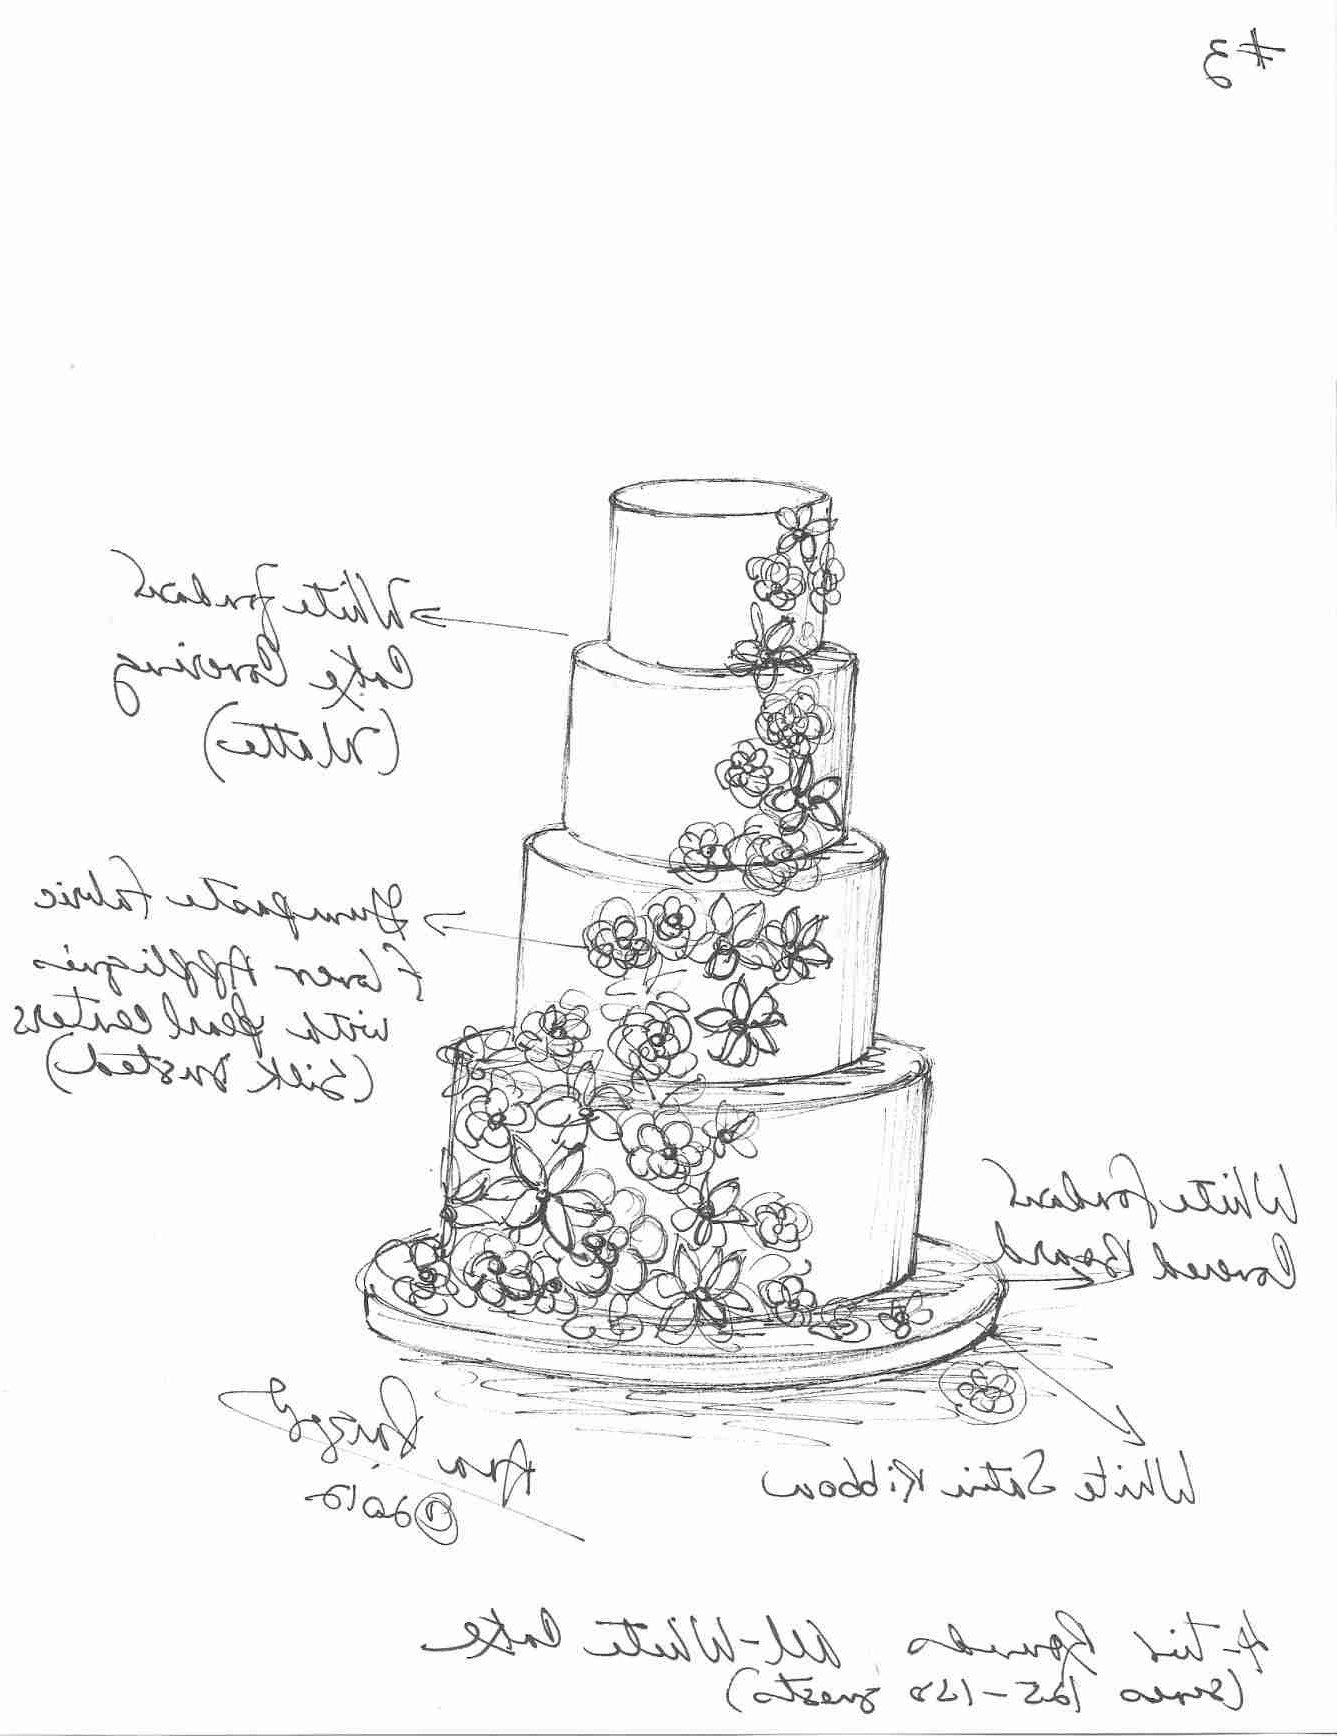 #3
White fondant
Cake Covering
(Matte)
Gumpaste Fabric
Flower Appliqués
with pearl centers
(Silk dusted)
White fondant
Covered Board
White Satin Ribbon
Ana
©2012
4-tier Rounds All-White Cake
(serves 125-150 guests)